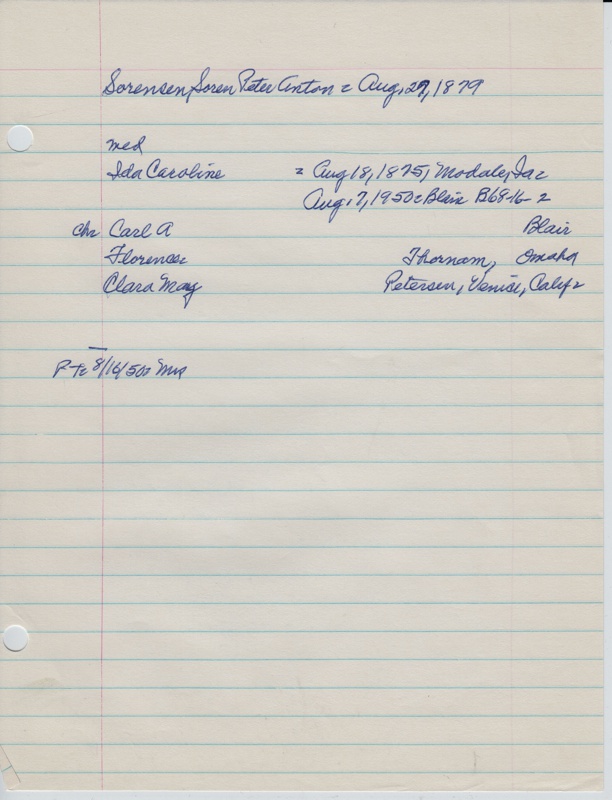 Sorensen, Soren Peter Anton = Aug. 27, 1879
med
Ida Caroline = Aug 18, 1875, Modale, Ia =
Aug. 7, 1950 = Blair B68-16- 2
ch = Carl A Blair
Florence = Thornam, Omaha
Clara May Petersen, Venice, Calif =
P-T = 8/16/50 =